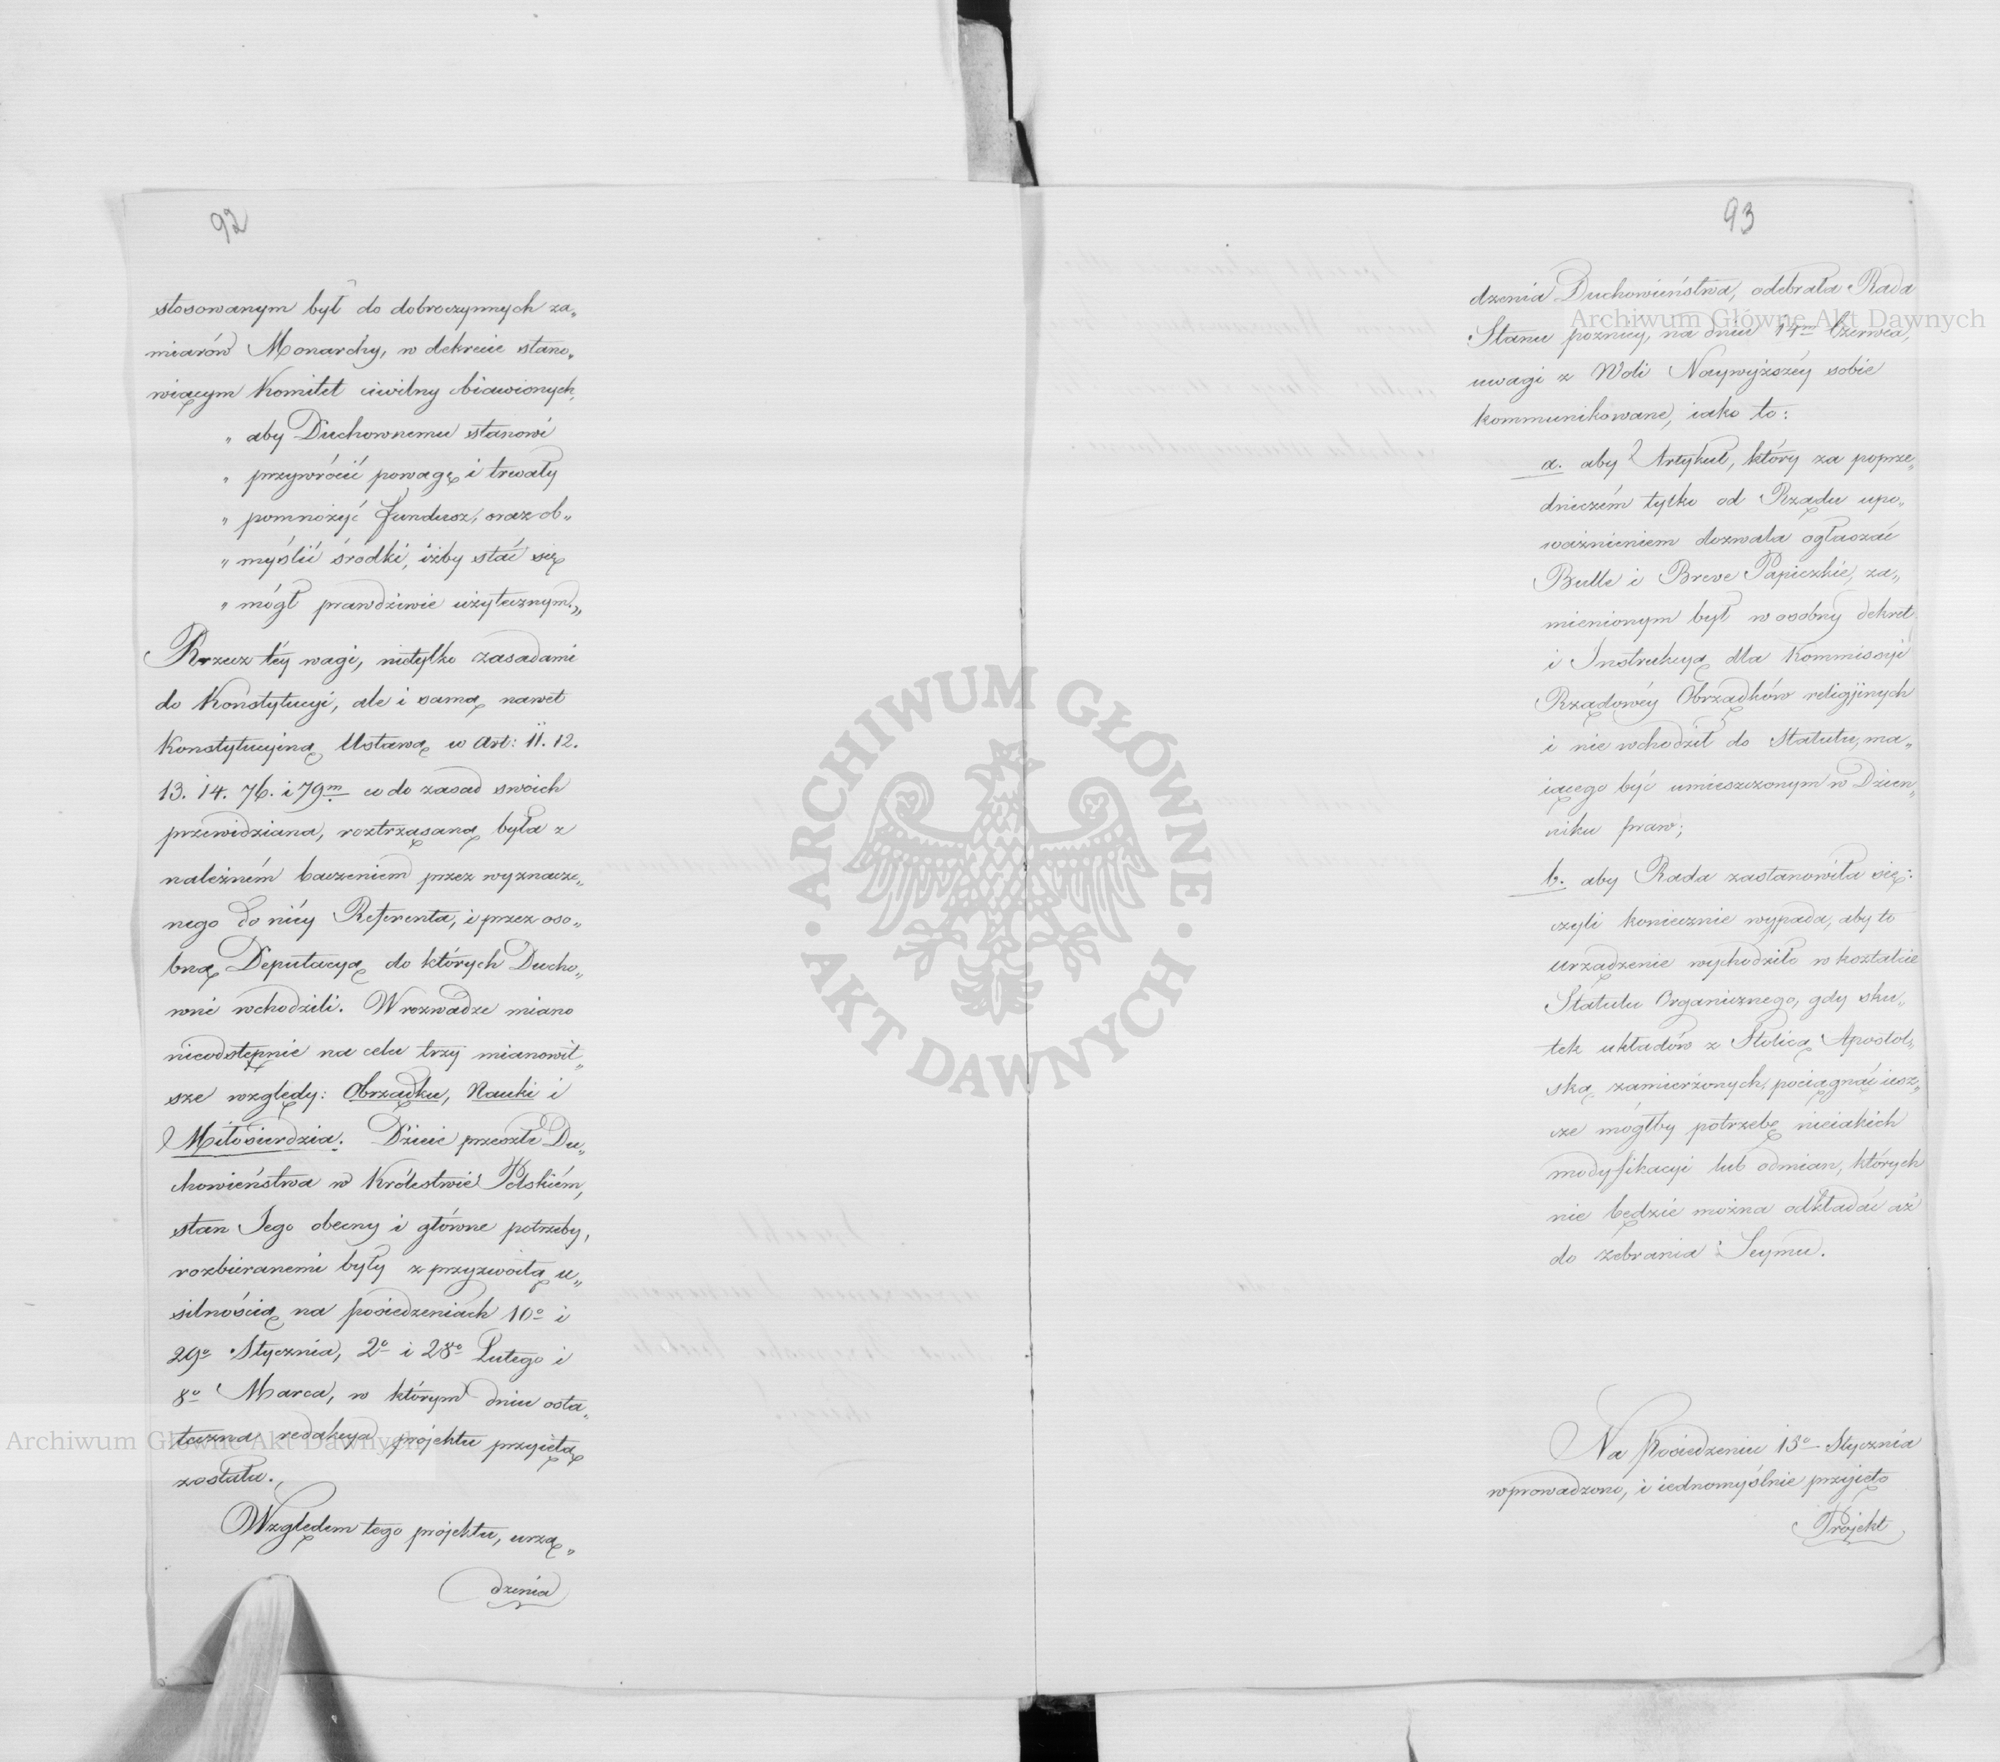 92
stosowanym był do dobroczynnych za„
miarów Monarchy, w dekrecie stano„
wiącym Komitet cywilny obiawionych,
„ aby Duchownemu stanowi
„ przywrócić powagę i trwały
„ pomnożyć fundusz, oraz ob„
„ myślić środki, iżby stać się
„ mógł prawdziwie użytecznym.„
Rzecz téy wagi, nietylko zasadami
do Konstytucyi, ale i samą nawet
Konstytucyjną Ustawą w Art: 11. 12.
13. 14. 76. i 79m co do zasad swoich
przewidziana, roztrząsaną była z
należném baczeniem przez wyznacze„
nego do niéy Referenta, i przez oso„
bną Deputacyą do których Ducho„
wni wchodzili. W rozwadze miano
nieodstępnie na celu trzy mianowit„
sze względy: Obrządku, Nauki i
Miłosierdzia. Dzieie przeszłe Du„
chowieństwa w Królestwie Polskiém,
stan Jego obecny i główne potrzeby,
rozbieranemi były z przyzwoitą u„
silnością na posiedzeniach 10o i
29o Stycznia, 2o i 28o Lutego i
8o Marca, w którym dniu osta„
teczna redakcya projektu przyiętą
została.
Względem tego projektu, urzą„
dzenia
93
dzenia Duchowieństwa, odebrała Rada
Stanu pozniéy, na dniu 14m Czerwca,
uwagi z Woli Naywyższéy sobie
kommunikowane, iako to:
a. aby Artykuł, który za poprze„
dniczém tylko od Rządu upo„
ważnieniem dozwala ogłaszać
Bulle i Breve Papiezkie, za„
mienionym był w osobny dekret
i Instrukcyą dla Kommissyi
Rządowéy Obrządków religijnych
i nie wchodził do Statutu, ma„
iącego być umieszczonym w Dzien„
niku praw;
b. aby Rada zastanowiła się:
czyli koniecznie wypada, aby to
urządzenie wychodziło w kształcie
Statutu Organicznego, gdy sku„
tek układów z Stolicą Apostol„
ską zamierzonych, pociągnąć iesz„
cze mógłby potrzebę nieiakich
modyfikacyi lub odmian, których
nie będzie można odkładać aż
do zebrania Seymu.
Na Posiedzeniu 13o Stycznia
wprowadzono, i iednomyślnie przyięto
Projekt
ARCHIWUM GŁÓWNE
AKT DAWNYCH
Archiwum Główne Akt Dawnych
Archiwum Główne Akt Dawnych